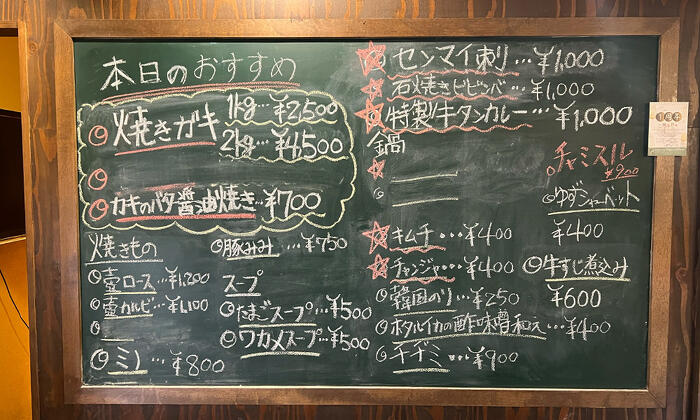 本日のおすすめ
焼きガキ 1kg…¥2,500
2kg…¥4,500
カキのバタ醤油焼き…¥700
焼きもの
壺ロース…¥1,200
壺カルビ…¥1,100
ミノ…¥800
豚みみ…¥750
スープ
たまごスープ…¥500
ワカメスープ…¥500
センマイ刺…¥1,000
石焼きビビンバ…¥1,000
特製牛タンカレー…¥1,000
鍋
キムチ…¥400
チャンジャ…¥400
韓国のり…¥250
ホタルイカの酢味噌和え…¥400
チヂミ…¥900
チャミスル
¥900
ゆずシャーベット
¥400
牛すじ煮込み
¥600